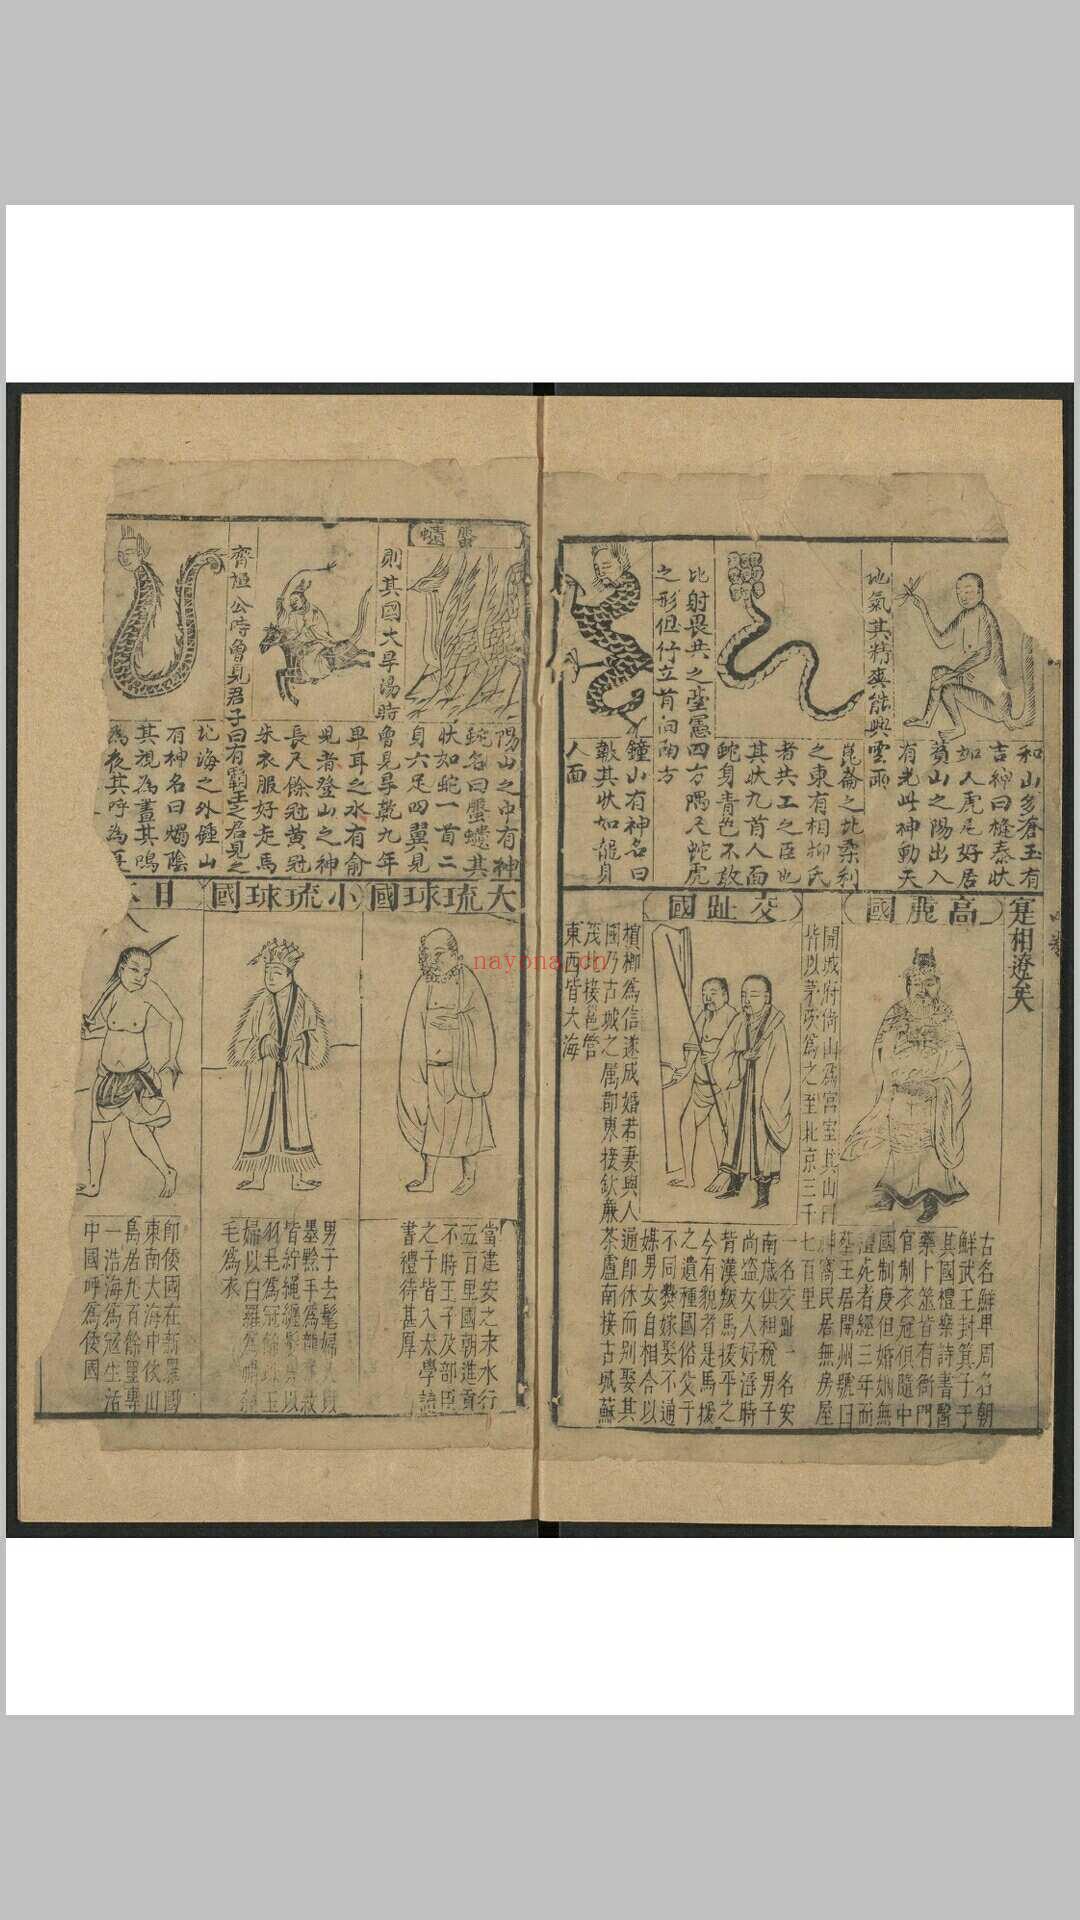 和山多蒼玉有
吉神曰
如人虎尾好居
萯山之陽出入
有光此神動天
地氣其精爽能興
雲雨
崑崙之北柔利
之東有相栁氏
者共工之臣也
其狀九首人面
蛇身青色不敢
北射畏共之臺䑓
四方隅
之形但佇立首向南方
鐘山有神名曰
其狀如龍身
人面
蠪
陽山之中有神
蛇名曰
狀如蛇一首二
身六足四翼見
則其國大旱湯時
曾見旱乾九年
卑耳之水有俞
兒者登山之神
長尺餘冠黃冠
朱衣服好走馬
齊桓公時曾見君子曰有霸王之君見之
北海之外鍾山
有神名曰燭陰
其視為晝其鳴
為夜其呼為
寔相遼矣
高麗國
古名鮮卑周名朝
鮮武王封箕子于
其國禮樂詩書醫
藥卜筮皆有衙門
官制衣冠俱隨中
國制度但婚姻無
禮死者經三年而
塟王居開州號曰
開城府倚山爲宮室其山曰
民居無房屋
皆以茅茨爲之至北京三千
七百里
交趾國
一名交趾一名安
南歲供租稅男子
尚盗女人好淫時
背漢叛馬援平之
今有貌者是馬援
之遺種國俗父子
不同爨嫁娶不通
媒男女自相合以
檳榔爲信遂成婚若妻與人
通即休而别娶其
國乃古城之属郡東接欽廉
茶盧南接古城蘇
茂北接邕管
東西皆大海
大琉球國
當建安之東水行
五百里國朝進貢
不時王子及部臣
之子皆入太學讀
書禮待甚厚
小琉球國
男子去髦婦人以
墨黥手爲龍
皆紵繩纏髮
羽毛爲冠
婦以白羅爲帽
毛爲衣
日本
即倭國在新羅國
東南大海中依山
島居九百餘里專
一浩海爲冦生活
中國呼爲倭國
nayona.cn